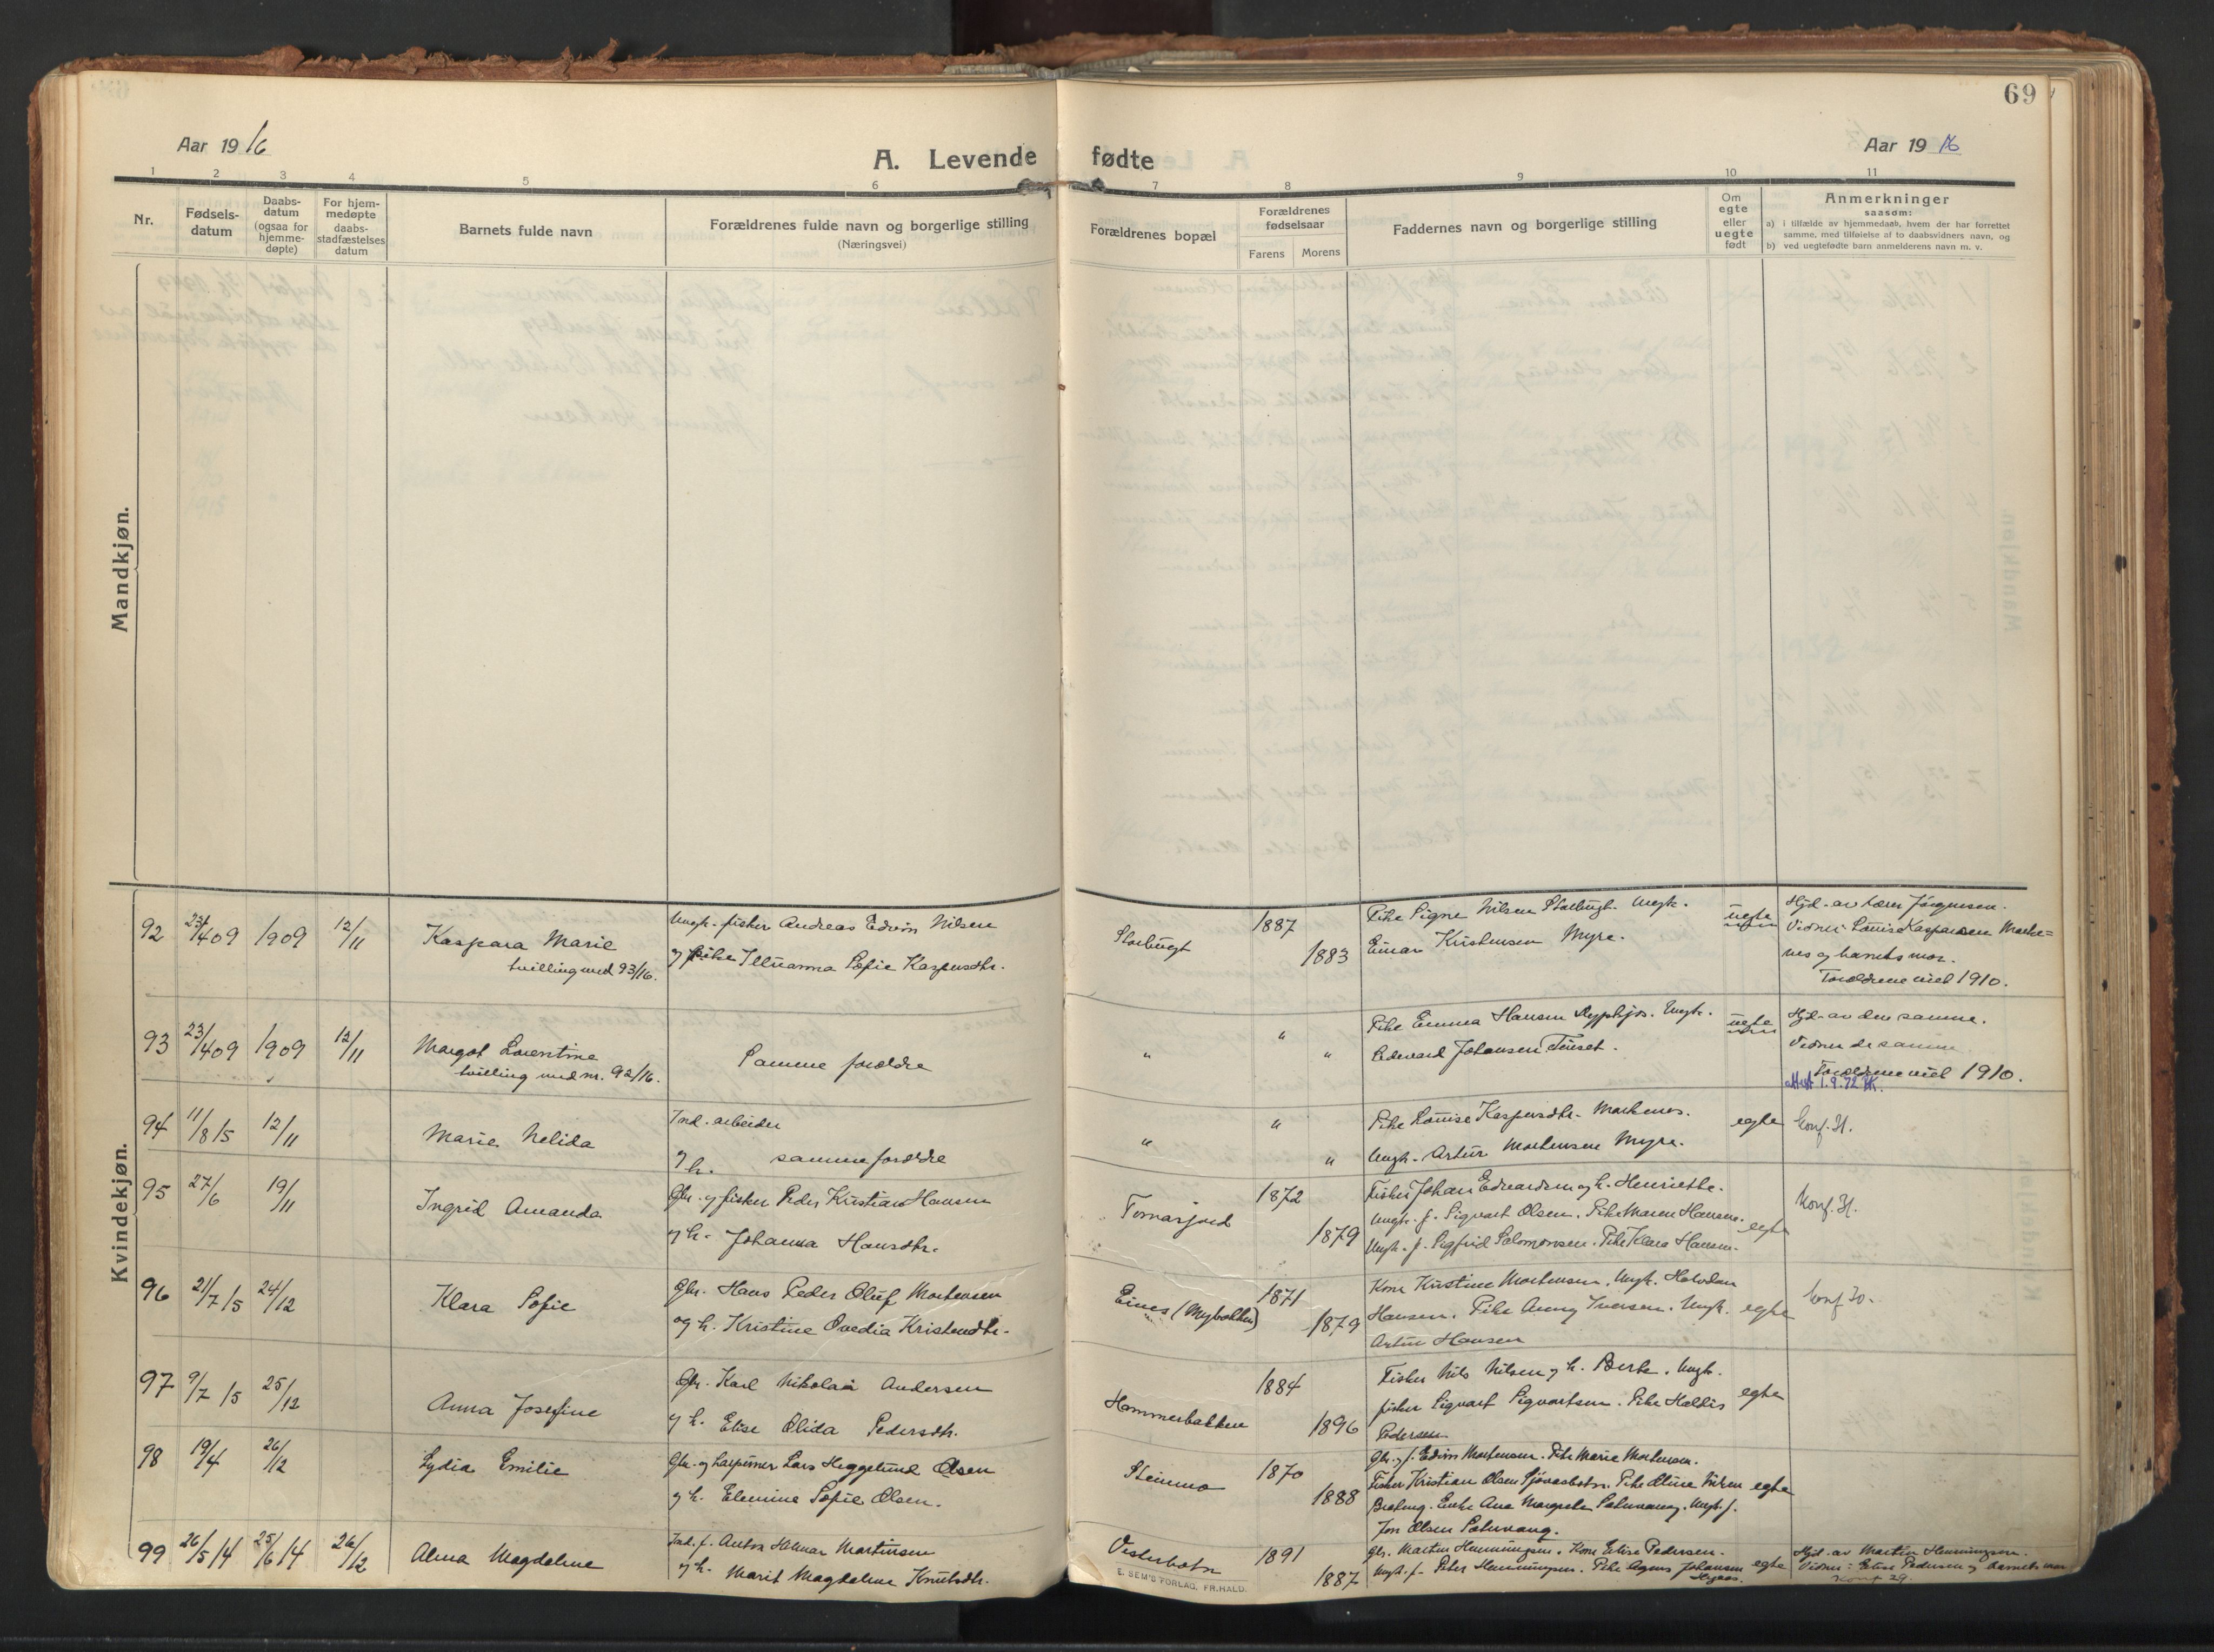 69
Aar 19 16
A. Levende fødte
Aar 19 16
1 2 3 4 5 6 7 8 9 10 11
Nr.
Fødsels-
datum
Daabs-
datum
(ogsaa for
hjemme-
døpte)
For hjem-
medøpte
daabs-
stadfæstelses
datum
Barnets fulde navn
Forældrenes fulde navn og borgerlige stilling
(Næringsvei)
Forældrenes bopæl
Forældrenes
fødselsaar
Farens Morens
Faddernes navn og borgerlige stilling
Om
egte
eller
uegte
født
Anmerkninger
saasom:
a) i tilfælde av hjemmedaab, hvem der har forrettet
samme, med tilføielse af to daabsvidners navn, og
b) ved uegtefødte barn anmelderens navn m. v.
Mandkjøn.
Kvindekjøn.
92 23/4 09 1909 12/11
Kaspara Marie
tvilling med 93/16.
Ungk. fisker Andreas Edvin Nilsen
og pike Sofie Kaspersdtr.
Storbugt
1887
1883
Pike Signe Nilsen Storbugt. Ungk.
Einar Kristensen Myre.
uegte
Hjd. av lærer Jørgensen.
Vidner: Louise Kaspersen
nes og barnets mor.
Foreldrene viet 1910.
93 23/4 09 1909 12/11
Margot Lorentine
tvilling med nr. 92/16.
Samme foreldre
" " "
Pike Emma Hansen . Ungk.
Edvard Johansen
uegte
Hjd. av den samme.
Vidner de samme
Foreldrene viet 1910.
attest 1.9.72
94 11/8 15 12/11
Marie Nelida
Ind. arbeider
og h. samme foreldre
" " "
Pike Louise Kaspersdtr.
Ungk. Artur Mortensen Myre.
egte
konf. 31.
95 27/6 19/11
Ingrid Amanda
Gbr. og fisker Peder Kristian Hansen
og h. Johanna Hansdtr.
Tomasjord
1872
1879
Fisker Johan Edvardsen og h. Henriette.
Ungk. f. Sigvart Olsen. Pike Maren Hansen.
Ungk. f. Sigfrid Salomonsen. Pike Klara Hansen.
egte
Konf. 31.
96 21/7 15 24/12
Klara Sofie
Gbr. Hans Peder Oluf Mortensen
og h. Kristine Ovedia Kristendtr.
Eines (Mybakken)
1871
1879
Kone Kristine Mortensen. Ungk. Halvdan
Hansen. Pike Anny Iversen. Ungk.
Artur Hansen
egte
konf 30.
97 9/7 15 25/12
Anna Josefine
Gbr. Karl Nikolai Andersen
og h. Elise Olida Pedersdtr.
Hammerbakken
1884
1896
Fisker Nils Nilsen og h. Berte. Ungk.
fisker Sigvart Sigvartsen. Pike Haldis
Pedersen
egte
98 19/4 26/12
Lydia Emilie
Gbr. og Lars Heggelund Olsen
og h. Elenine Sofie Olsen.
Steinmo
1870
1888
Gbr. og f. Edvin Mortensen. Pike Marie Mortensen.
Fisker Kristian Olsen Sjøvasbotn. Pike Oline
Enke Ane Margrete . Ungk. f.
Jon Olsen
egte
99 26/5 14 25/6 14 26/12
Alma Magdalene
Ind. f. Anton Hilmar Martinsen
og h. Marit Magdalene Knutsdtr.
Vesterbotn
1891
1887
Gbr. Martin Henningsen. Kone Elise Pedersen.
Ungk. f. Peter Henningsen. Pike Johansen
egte
Hjd. av Martin Henningsen.
Vidner: Elise Pedersen og barnets mor
Konf 29.
E. SEM'S FORLAG, FR.HALD.